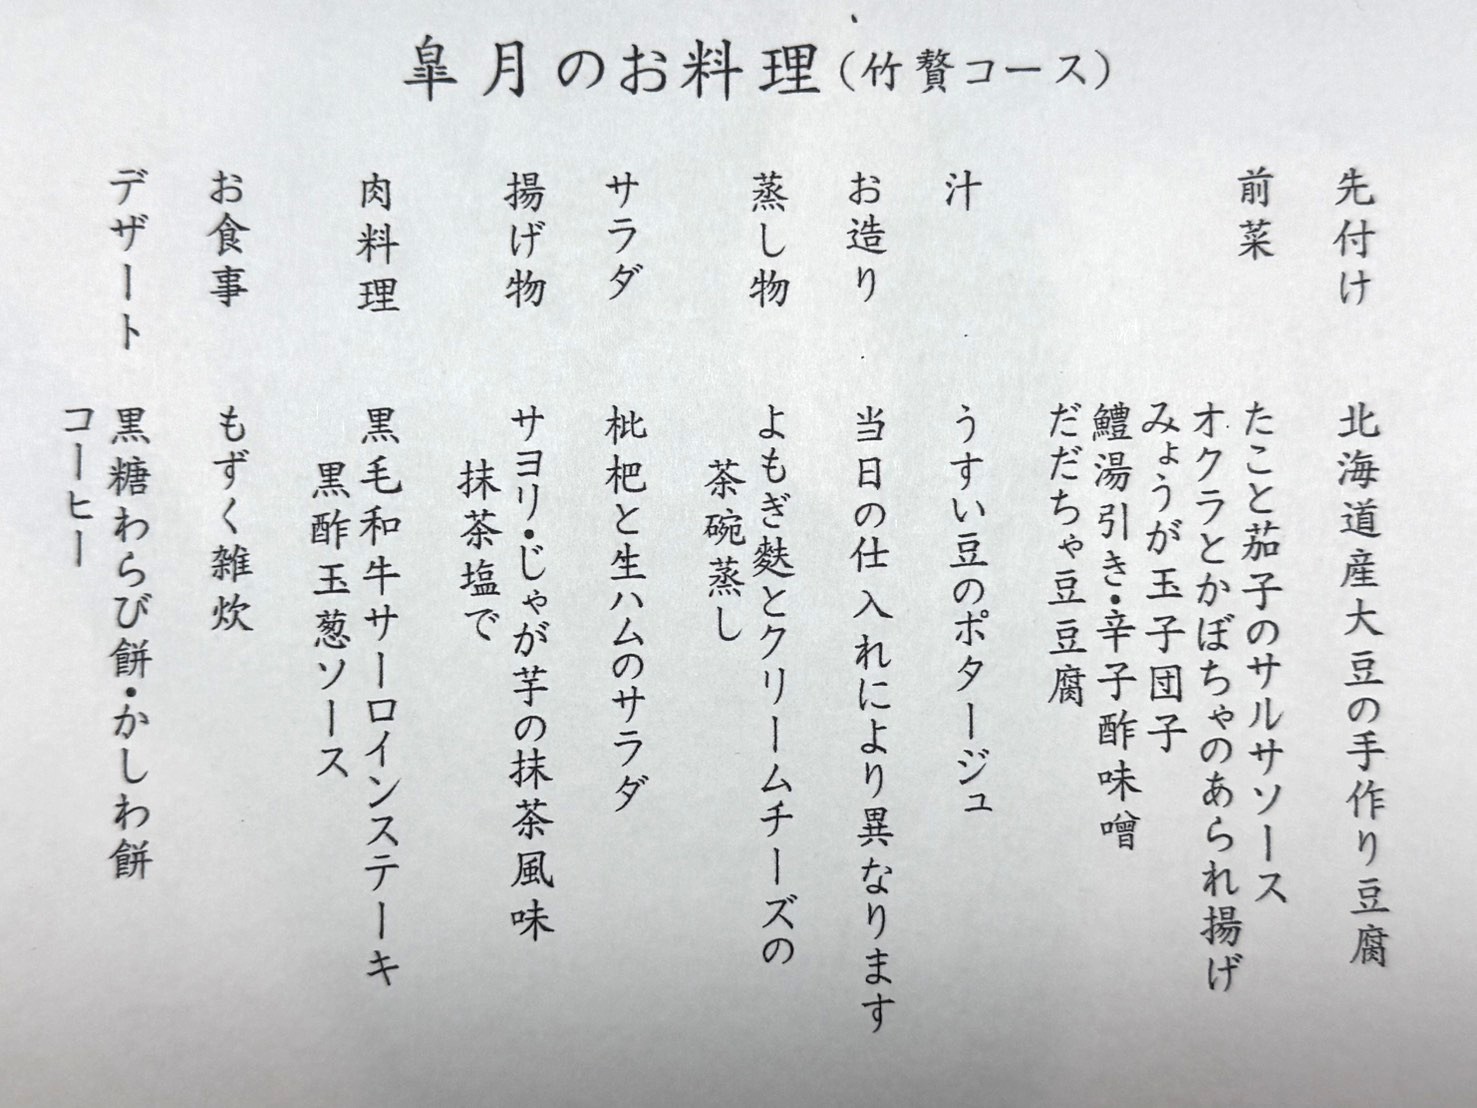 皐月のお料理（竹贅コース）
先付け　北海道産大豆の手作り豆腐
前菜　たこと茄子のサルサソース
オクラとかぼちゃのあられ揚げ
みょうが玉子団子
鱧湯引き・辛子酢味噌
だだちゃ豆豆腐
汁　うすい豆のポタージュ
お造り　当日の仕入れにより異なります
蒸し物　よもぎ麩とクリームチーズの
茶碗蒸し
サラダ　枇杷と生ハムのサラダ
揚げ物　サヨリ・じゃが芋の抹茶風味
抹茶塩で
肉料理　黒毛和牛サーロインステーキ
黒酢玉葱ソース
お食事　もずく雑炊
デザート　黒糖わらび餅・かしわ餅
コーヒー